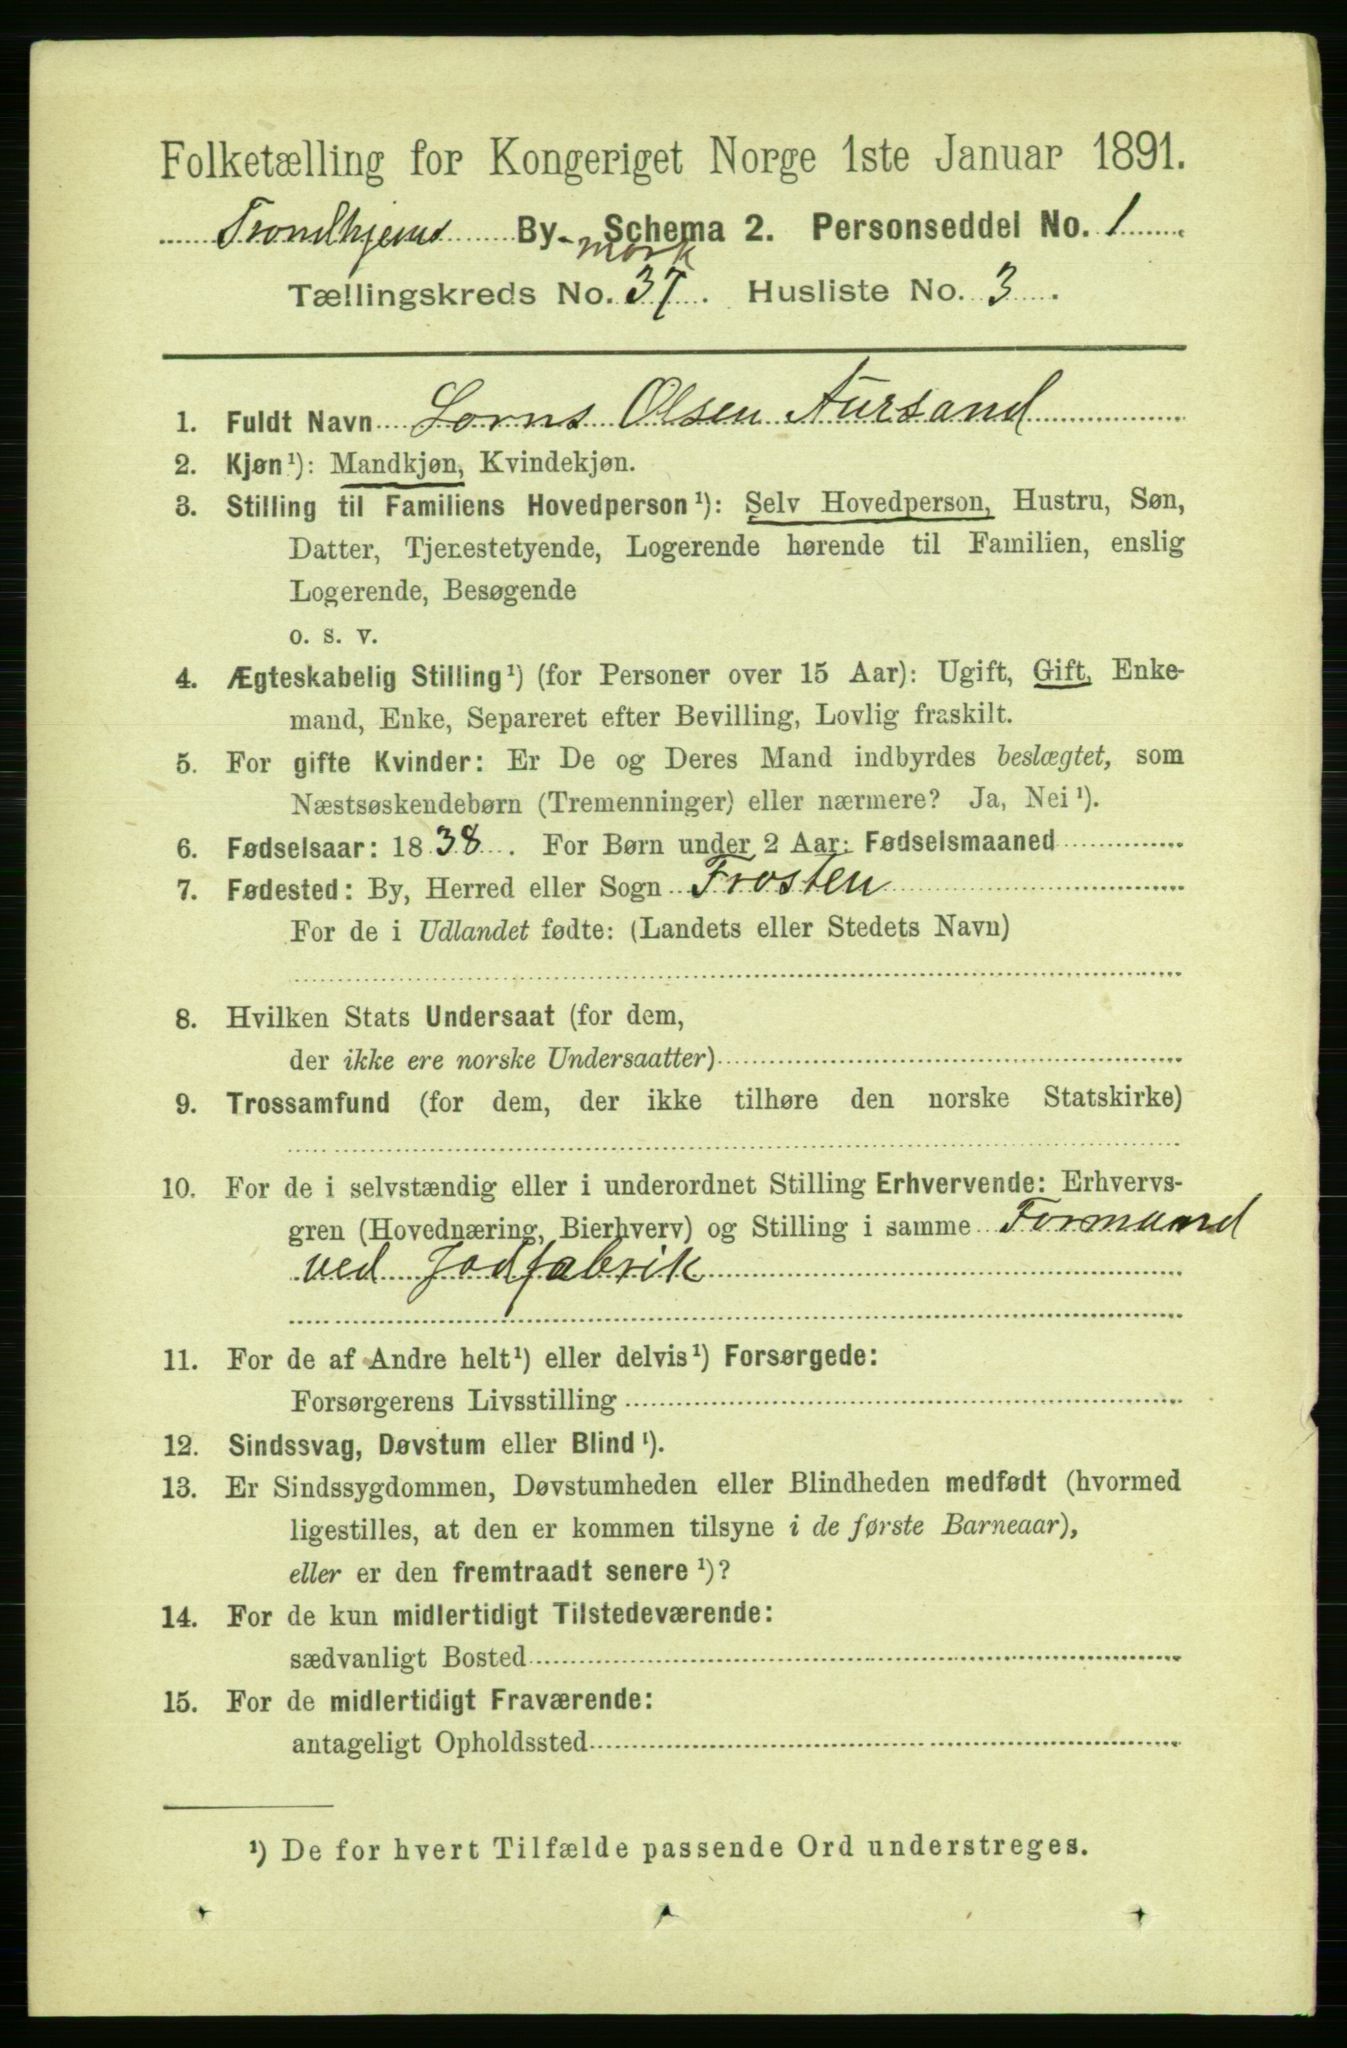 Folketælling for Kongeriget Norge 1ste Januar 1891.
Trondhjems By-mark Schema 2. Personseddel No. 1
Tællingskreds No. 37. Husliste No. 3.
1. Fuldt Navn Lorns Olsen Aursand
2. Kjøn¹): Mandkjøn, Kvindekjøn.
3. Stilling til Familiens Hovedperson¹): Selv Hovedperson, Hustru, Søn,
Datter, Tjenestetyende, Logerende hørende til Familien, enslig
Logerende, Besøgende
o. s. v.
4. Ægteskabelig Stilling¹) (for Personer over 15 Aar): Ugift, Gift, Enke-
mand, Enke, Separeret efter Bevilling, Lovlig fraskilt.
5. For gifte Kvinder: Er De og Deres Mand indbyrdes beslægtet, som
Næstsøskendebørn (Tremenninger) eller nærmere? Ja, Nei¹).
6. Fødselsaar: 1838. For Børn under 2 Aar: Fødselsmaaned
7. Fødested: By, Herred eller Sogn Frosten
For de i Udlandet fødte: (Landets eller Stedets Navn)
8. Hvilken Stats Undersaat (for dem,
der ikke ere norske Undersaatter)
9. Trossamfund (for dem, der ikke tilhøre den norske Statskirke)
10. For de i selvstændig eller i underordnet Stilling Erhvervende: Erhvervs-
gren (Hovednæring, Bierhverv) og Stilling i samme Formand
ved Jodfabrik
11. For de af Andre helt¹) eller delvis¹) Forsørgede:
Forsørgerens Livsstilling
12. Sindssvag, Døvstum eller Blind¹).
13. Er Sindssygdommen, Døvstumheden eller Blindheden medfødt (hvormed
ligestilles, at den er kommen tilsyne i de første Barneaar),
eller er den fremtraadt senere¹)?
14. For de kun midlertidigt Tilstedeværende:
sædvanligt Bosted
15. For de midlertidigt Fraværende:
antageligt Opholdssted
¹) De for hvert Tilfælde passende Ord understreges.